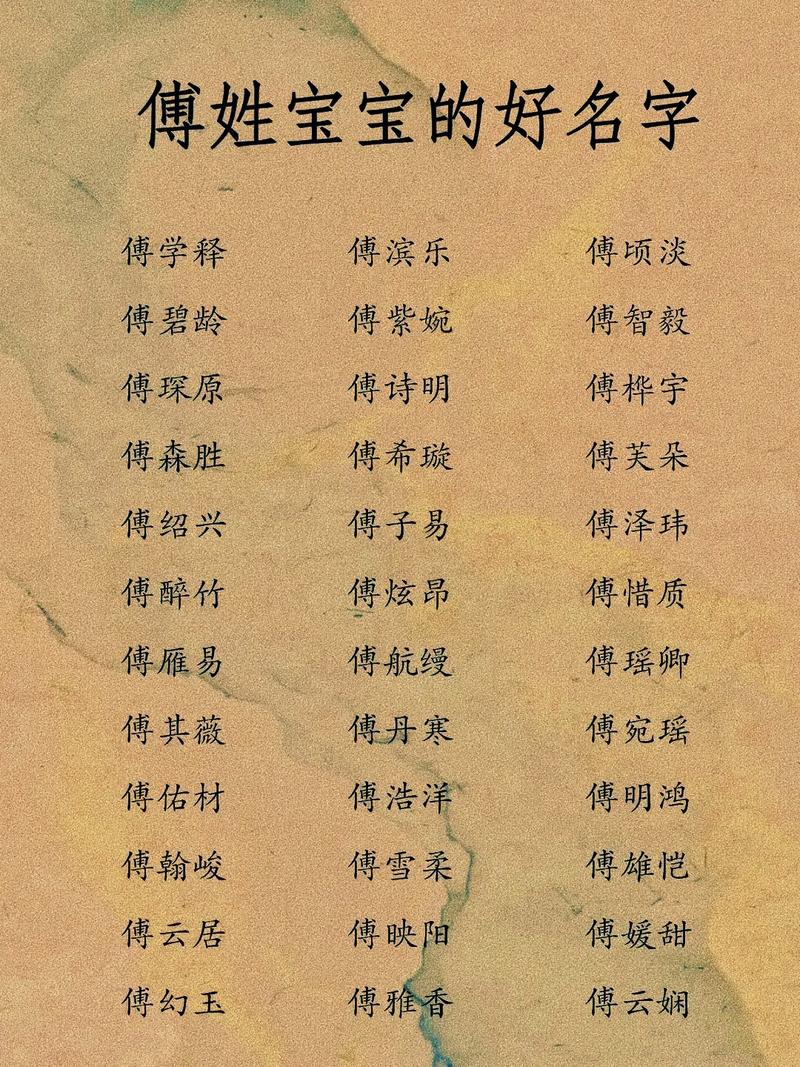 傅姓宝宝的好名字
傅学释 傅滨乐 傅顷淡
傅碧龄 傅紫婉 傅智毅
傅琛原 傅诗明 傅桦宇
傅森胜 傅希璇 傅芙朵
傅绍兴 傅子易 傅泽玮
傅醉竹 傅炫昂 傅惜质
傅雁易 傅航缦 傅瑶卿
傅其薇 傅丹寒 傅宛瑶
傅佑材 傅浩洋 傅明鸿
傅翰峻 傅雪柔 傅雄恺
傅云居 傅映阳 傅媛甜
傅幻玉 傅雅香 傅云娴